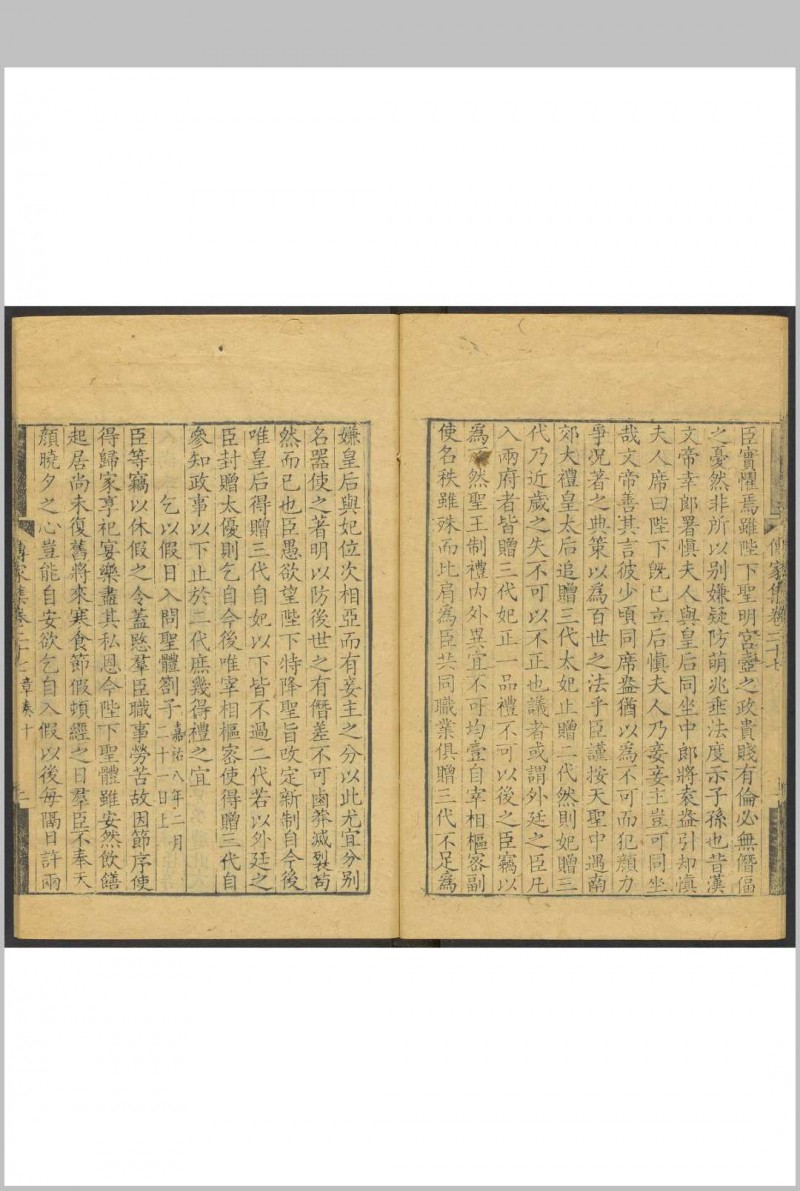 臣實懼焉雖陛下聖明宮壼之政貴賤有倫必無僭偪
之憂然非所以別嫌疑防萌兆垂法度示子孫也昔漢
文帝幸郎署慎夫人與皇后同坐中郎將袁盎引却慎
夫人席曰陛下旣已立后慎夫人乃妾妾主豈可同坐
哉文帝善其言彼少頃同席盎猶以為不可而犯顏力
爭况著之典策以為百世之法乎臣謹按天聖中遇南
郊大禮皇太后追贈三代太妃止贈二代然則妃贈三
代乃近歲之失不可以不正也議者或謂外廷之臣凡
入兩府者皆贈三代妃正一品禮不可以後之臣竊以
為不然聖王制禮內外異宜不可均壹自宰相樞密副
使名秩雖殊而比肩為臣共同職業俱贈三代不足為
傳家集卷二十七
嫌皇后與妃位次相亞而有妾主之分以此尤宜分別
名器使之著明以防後世之有僭差不可鹵莽滅裂苟
然而已也臣愚欲望陛下特降聖旨改定新制自今後
唯皇后得贈三代自妃以下皆不過二代若以外廷之
臣封贈太優則乞自今後唯宰相樞密使得贈三代自
參知政事以下止於二代庶幾得禮之宜
乞以假日入問聖體劄子嘉祐八年二月二十一日上
臣等竊以休假之令蓋愍羣臣職事勞苦故因節序使
得歸家享祀宴樂盡其私恩今陛下聖體雖安然飲饍
起居尚未復舊將來寒食節假頻經之日羣臣不奉天
顏曉夕之心豈能自安欲乞自入假以後每隔日許兩
傳家集卷二十七 章奏十